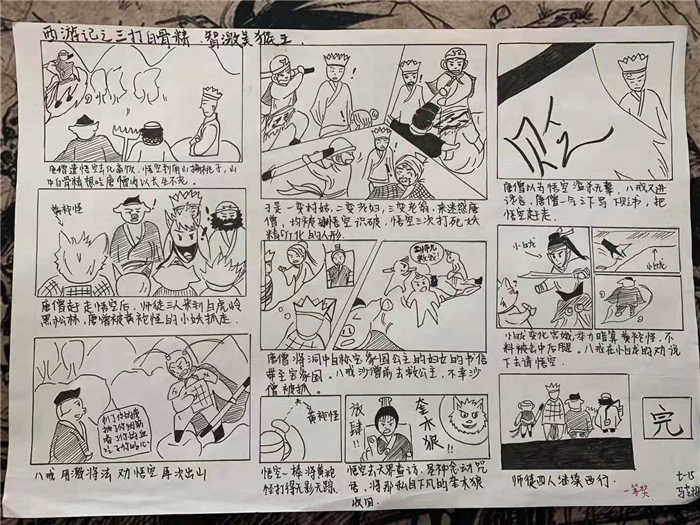 西游记之三打白骨精.智激美猴王
唐僧遣悟空去化斋饭,悟空到南山摘桃子,山
中白骨精想吃唐僧肉以长生不老。
于是一变村姑,二变老妇,三变老翁,来迷惑唐
僧,均被悟空识破,悟空三次打死妖
精所化的人形
贬
唐僧以为悟空滥杀无辜,八戒又进
谗言,唐僧一气之下写下贬书,把
悟空赶走.
黄袍怪
唐僧赶走悟空后,师徒三人来到白虎岭
黑松林,唐僧被黄袍怪的小妖抓走.
救我!
唐僧将洞中自称宝象国公主的妇女的书信
带至宝象国。八戒沙僧前去救公主,不幸沙
僧被抓。
小白龙
小白龙
小白龙变化宫娥,奋力暗算黄袍怪,不
料被击中后腿。八戒在小白龙的劝说
下去请悟空.
八戒用激将法劝悟空再次出山
黄袍怪
悟空一棒将黄袍
怪打得无影无踪
放肆!!
奎木狼!
悟空去天界查访,星神念动咒
语,将那私自下凡的奎木狼
收回
师徒四人继续西行.
完
一等奖
七-15